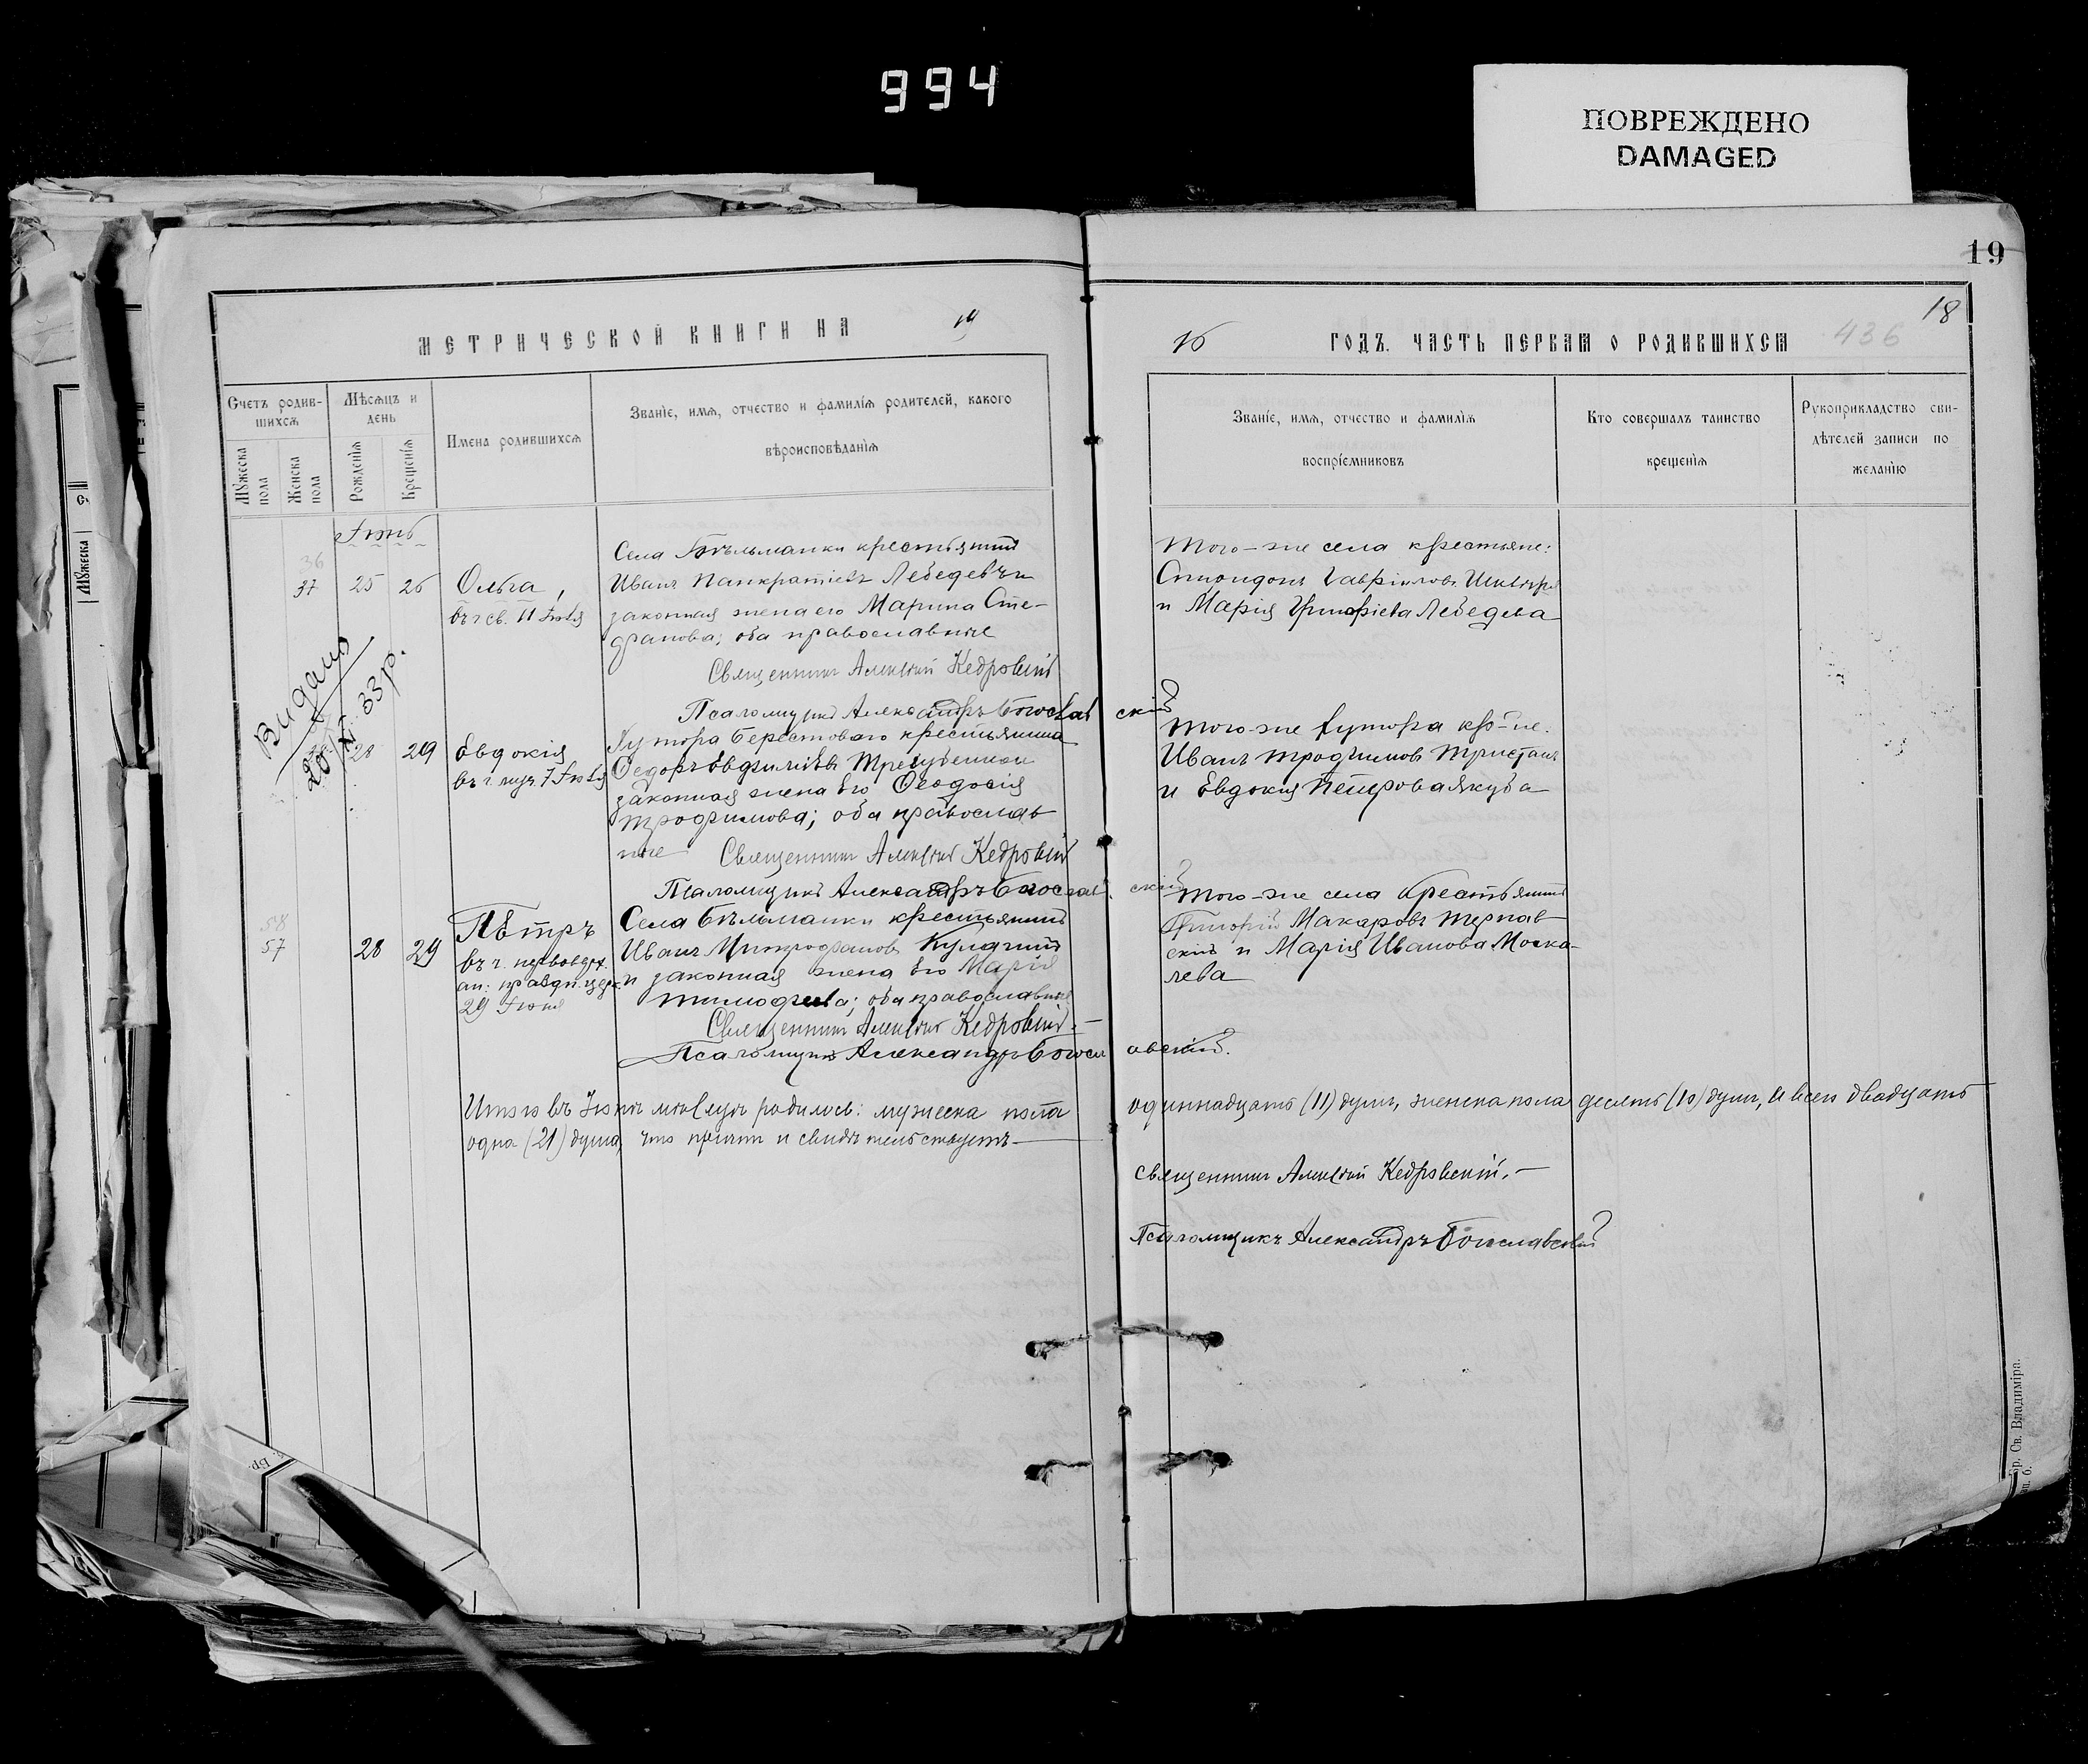 994
ПОВРЕЖДЕНО
DAMAGED
19
18
436
МЕТРИЧЕСКОЙ КНИГИ НА 19
16 ГОДЪ. ЧАСТЬ ПЕРВАЯ О РОДИВШИХСЯ
Счетъ родив-
шихся
Мужеска пола
Женска пола
Мѣсяцъ и
день
Рожденія
Крещенія
Имена родившихся
Званіе, имя, отчество и фамилія родителей, какого
вѣроисповѣданія
Званіе, имя, отчество и фамилія
воспріемниковъ
Кто совершалъ таинство
крещенія
Рукоприкладство сви-
дѣтелей записи по
желанію
Іюнь
36
37 25 26
Ольга,
въ ч. св. 11 Іюля
Села Бѣльманки крестьянинъ
Иванъ Панкратіевъ Лебедевъ и
законная жена его Марина Сте-
фанова; оба православные
Священникъ Алексій Кедровскій
Псаломщикъ Александръ Богославскій
Того-же села крестьяне:
Спиридонъ Гавріиловъ
и Марія Григоріева Лебедева
Видано
20/XI 33 р.
28 29
Евдокія
въ ч. муч. 7 Іюля
Хутора Берестоваго крестьянина
Ѳедоръ Евфиміевъ
законная жена его Ѳеодосія
Трофимова; оба православ
ные Священникъ Алексій Кедровскій
Псаломщикъ Александръ Богославскій
Того-же хутора кр-не:
Иванъ Трофимовъ
и Евдокія Петрова Якуба
58
57 28 29
Пѣтръ
въ ч. первоверх.
ап: праздн. церк.
29 Іюня
Села Бѣльманки крестьянинъ
Иванъ Митрофановъ Кулагинъ
и законная жена его Марія
Тимофеева; оба православные
Священникъ Алексій Кедровскій.-
Псаломщикъ Александръ Богословскій.
Того-же села крестьянинъ
Григорій Макаровъ Тернав-
скій и Марія Иванова Моска-
лева
Итого въ Іюнѣ мѣсяцѣ родилось: мужеска пола одиннадцать (11) душъ, женска пола десять (10) душъ, а всего двадцать
одна (21) душа, что причтъ и свидѣтельствуетъ
Священникъ Алексій Кедровскій.-
Псаломщикъ Александръ Богославскій
бр. Св. Владиміра.
Бр.
Мужеска